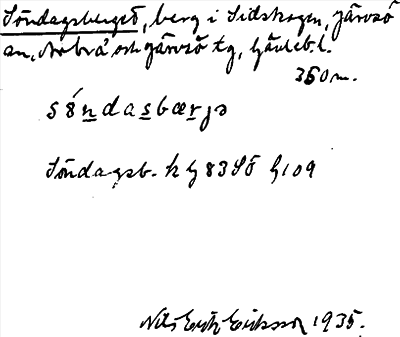 Söndagsberget, berg i Sidskogen, Järvsö
sn, Arbrå och Järvsö tg, Gävlebl.
350 m.
söndasbærjə
Söndagsb. k G 83 SÖ G 109
Nils Erik Eriksson 1935.